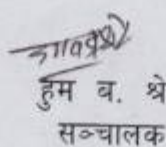 हुम ब. श्रे
सञ्चालक